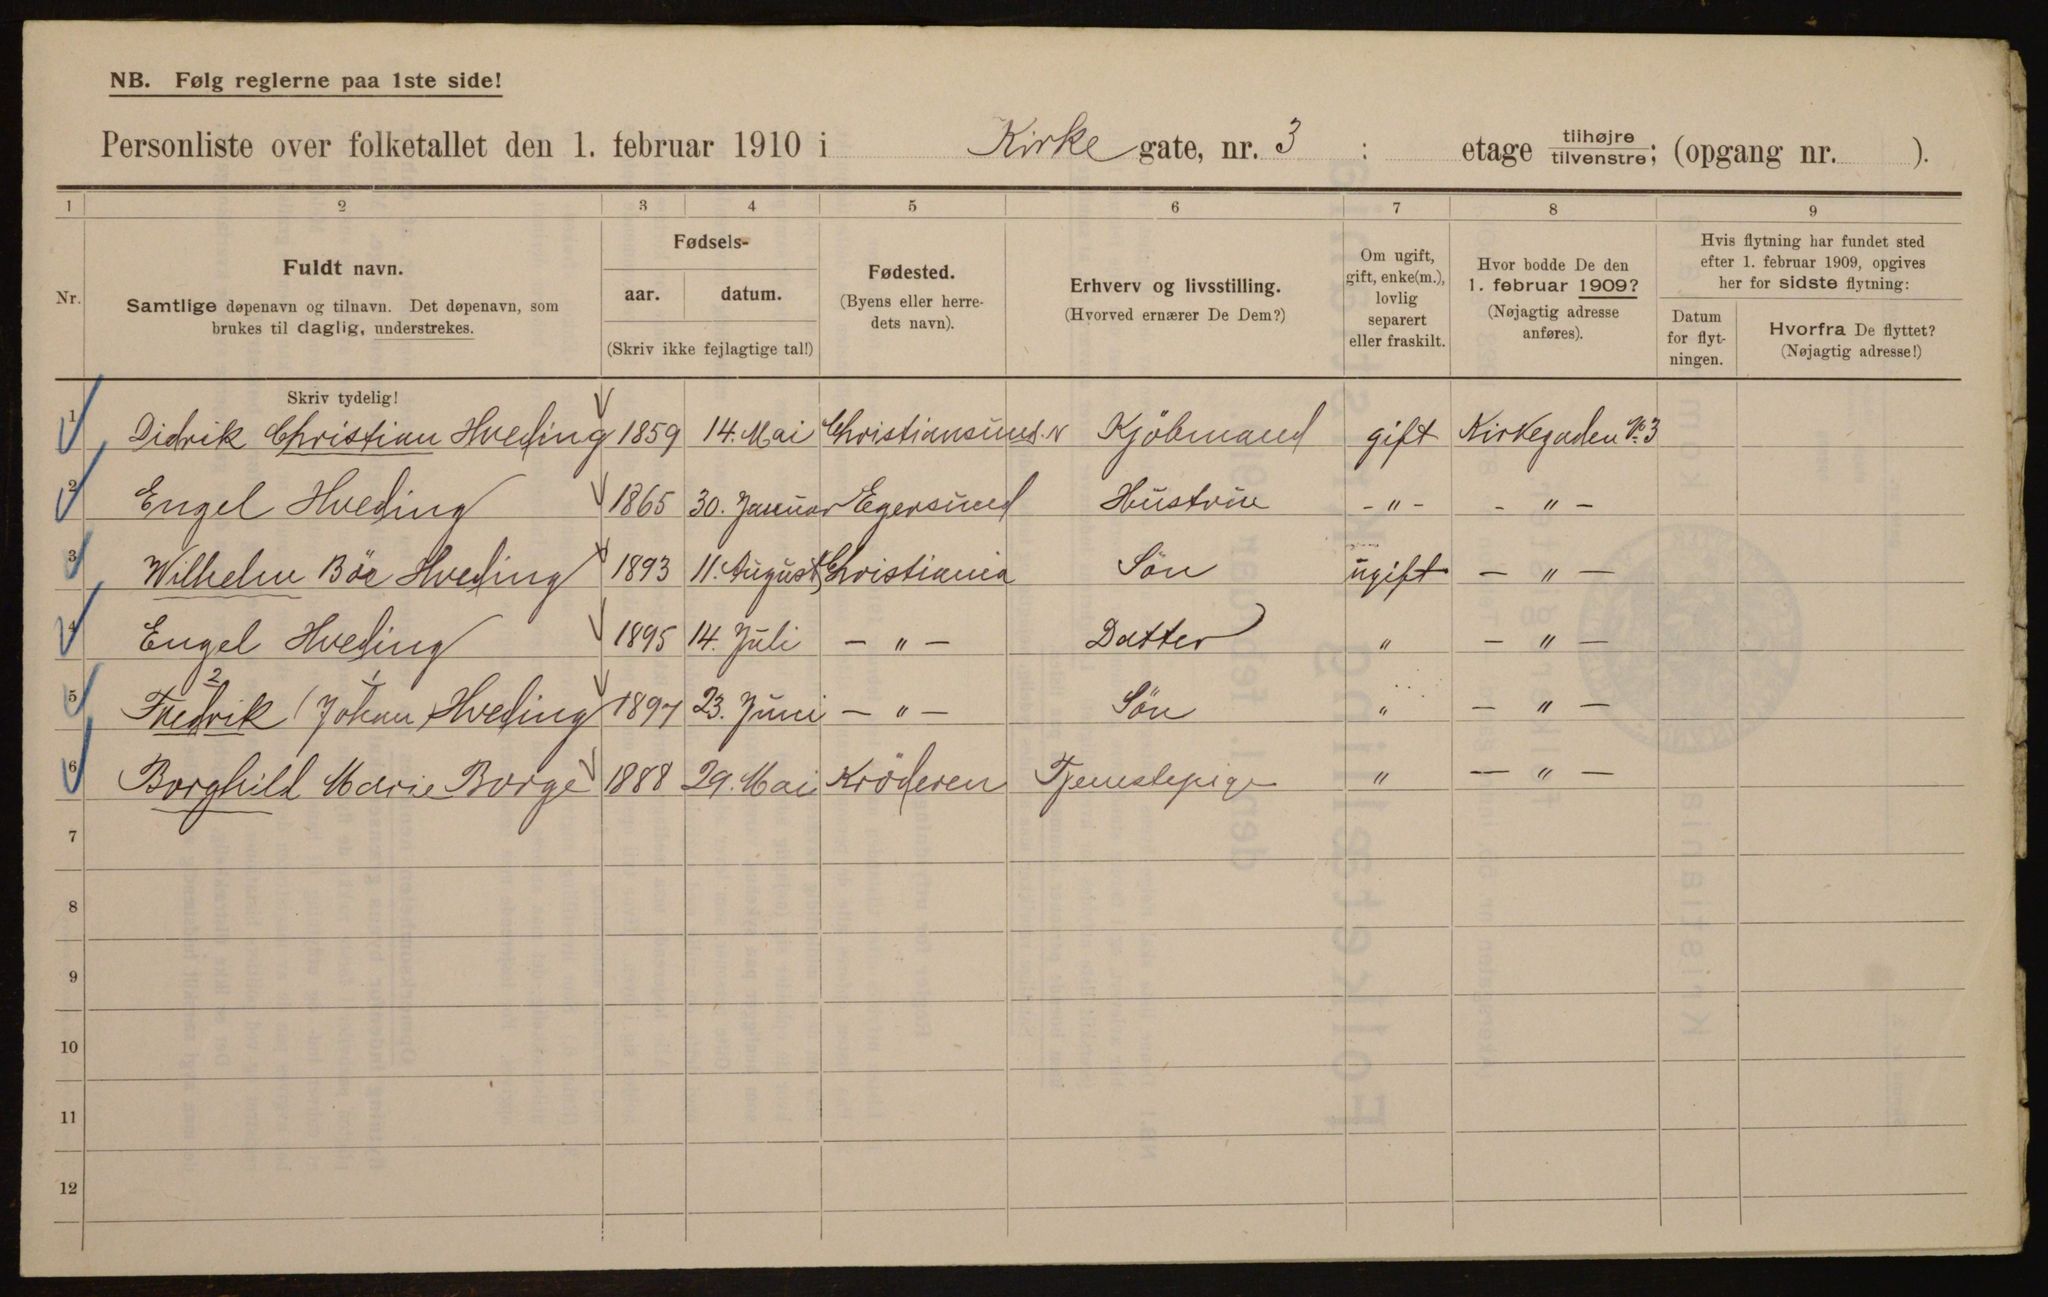 NB. Følg reglerne paa 1ste side!
Personliste over folketallet den 1. februar 1910 i Kirke gate, nr. 3 : etage tilhøjre tilvenstre; (opgang nr. ).
1 2 3 4 5 6 7 8 9
Nr.
Fuldt navn.
Samtlige døpenavn og tilnavn. Det døpenavn, som
brukes til daglig, understrekes.
Fødsels-
aar. datum.
(Skriv ikke fejlagtige tal!)
Fødested.
(Byens eller herre-
dets navn).
Erhverv og livsstilling.
(Hvorved ernærer De Dem?)
Om ugift,
gift, enke(m.),
lovlig
separert
eller fraskilt.
Hvor bodde De den
1. februar 1909?
(Nøjagtig adresse
anføres).
Hvis flytning har fundet sted
efter 1. februar 1909, opgives
her for sidste flytning:
Datum
for flyt-
ningen.
Hvorfra De flyttet?
(Nøjagtig adresse!)
Skriv tydelig!
1 Didrik Christian Hveding 1859 14. Mai Christiansund. N Kjöbmand gift Kirkegaden No. 3
2 Engel Hveding 1865 30. Januar Egersund Hustrue - " - - " -
3 Wilhelm Böe Hveding 1893 11. August Christiania Sön ugift - " -
4 Engel Hveding 1895 14. Juli - " - Datter " - " -
2 1
5 Fredrik (Johan Hveding 1897 23. Juni - " - Sön " - " -
6 Borghild Marie Borge 1888 29. Mai Kröderen Tjenestepige " - " -
7
8
9
10
11
12